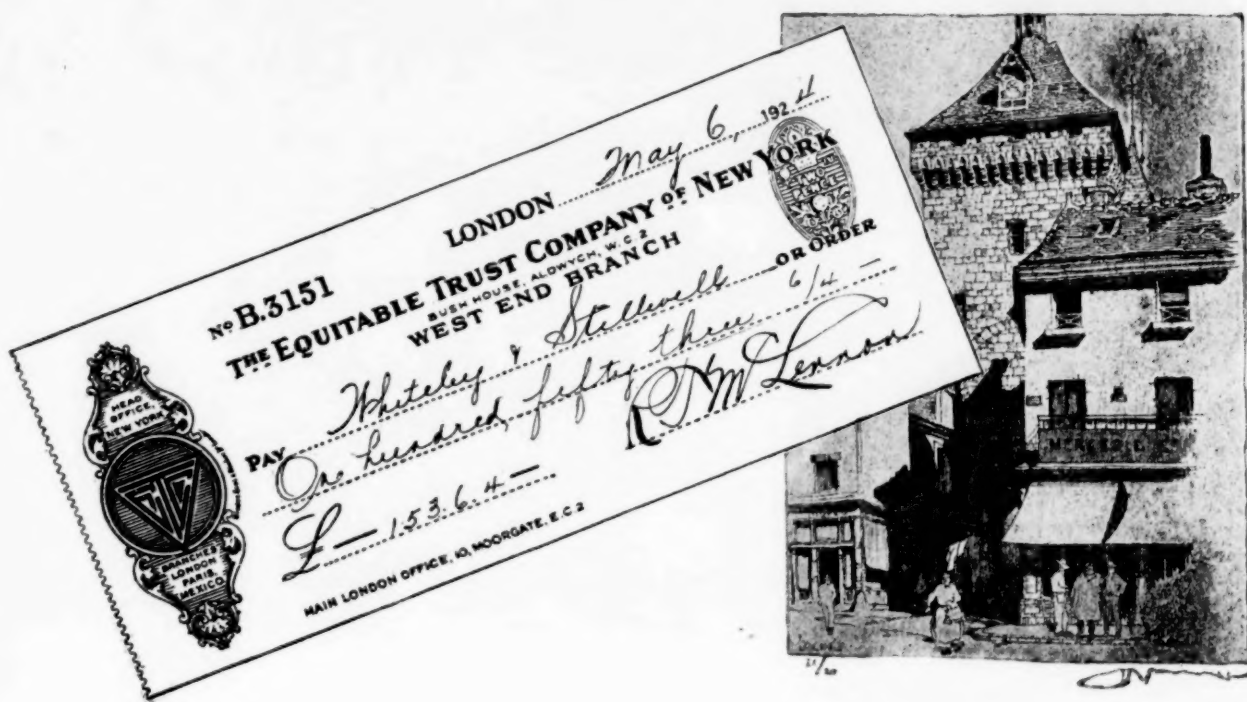 LONDON May 6, 1924
Nº B.3151
THE EQUITABLE TRUST COMPANY OF NEW YORK
BUSH HOUSE, ALDWYCH, W.C.2
WEST END BRANCH
TWO PENCE
PAY Whiteley & Stillwell OR ORDER
One hundred, fifty three 6/4 —
£ — 153.6.4 —
R H McLennon
MAIN LONDON OFFICE, 10, MOORGATE, E.C.2
HEAD
OFFICE,
NEW YORK
BRANCHES
LONDON
PARIS,
MEXICO